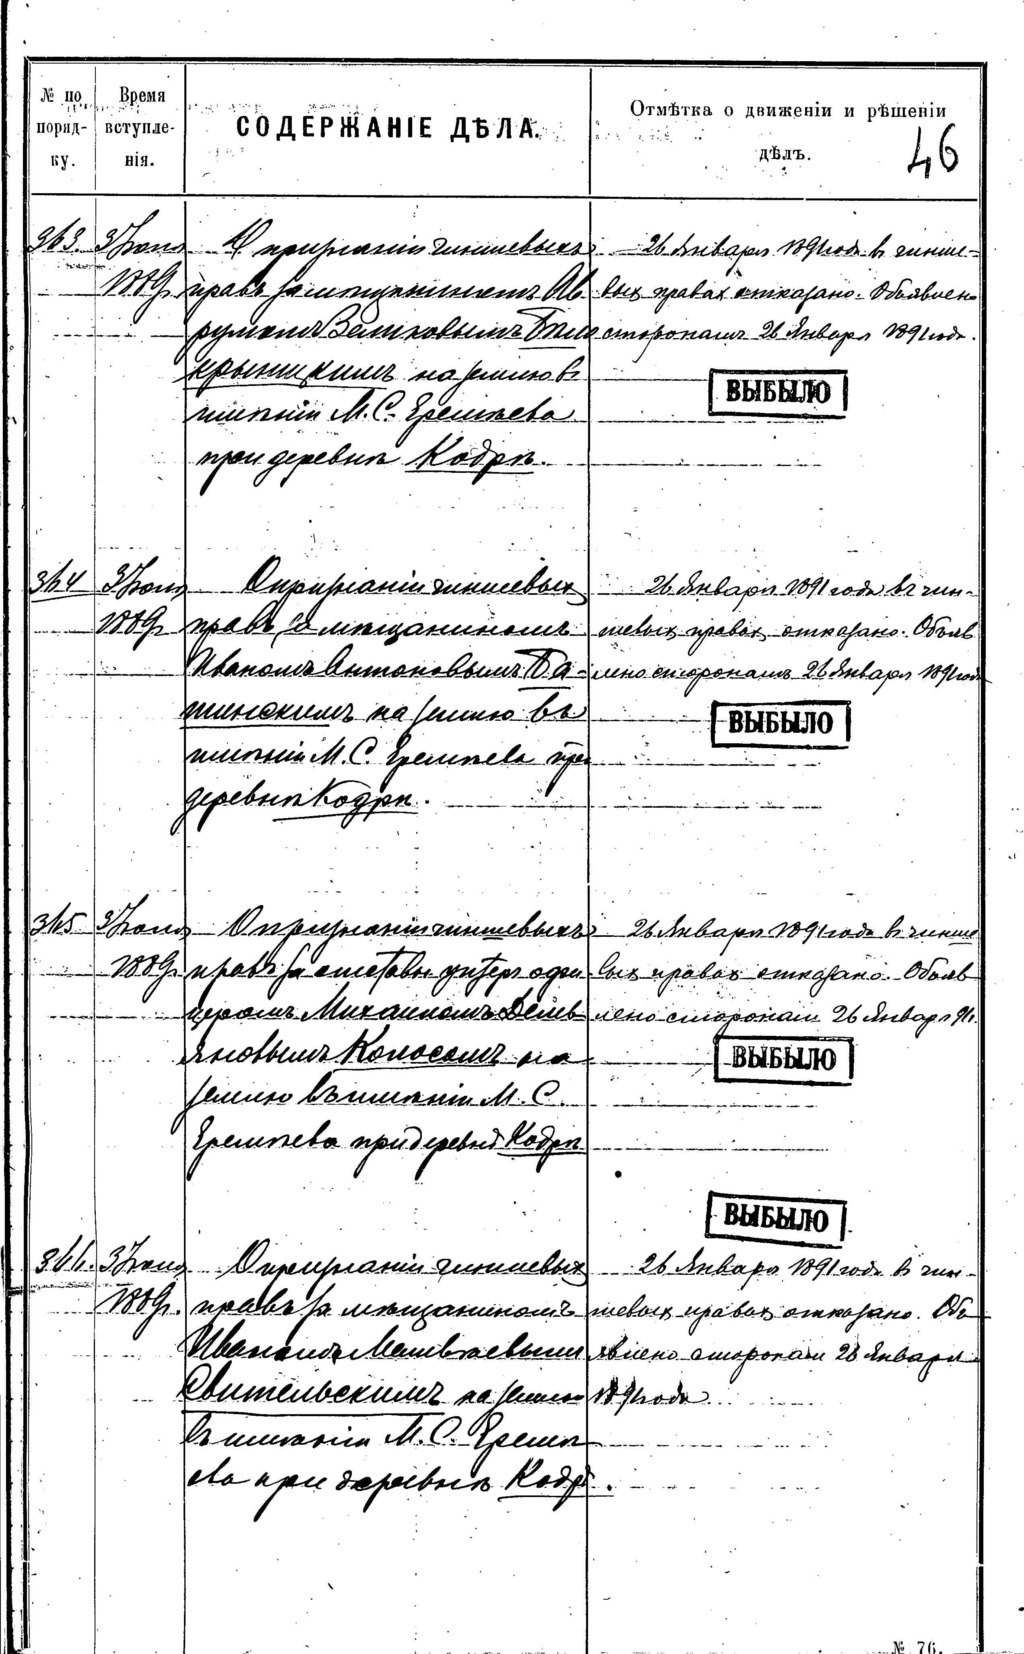 № по поряд-ку.
Время вступле-нія.
СОДЕРЖАНІЕ ДѢЛА.
Отмѣтка о движеніи и рѣшеніи дѣлъ.
46
363. 3 Іюня 1889 г.
О признаніи чиншевыхъ
правъ за мещаниномъ Ав
румомъ
крыницкимъ на землю въ
имѣніи М. С. Еремѣева
при деревнѣ Кодрѣ.
26 Января 1891 года въ чинше-
выхъ правах отказано. Объявлено
сторонамъ 26 Января 1891 года.
ВЫБЫЛО
364 3 Іюня 1889 г.
О признаніи чиншевых
правъ за мѣщаниномъ
Иваномъ Антоновымъ Ба-
шинскимъ на землю въ
имѣніи М. С. Еремѣева при
деревнѣ Кодрѣ.
26 Января 1891 года въ чин-
шевых правах отказано. Объяв
лено сторонамъ 26 Января 1891 года
ВЫБЫЛО
365 3 Іюня 1889 г.
О признаніи чиншевыхъ
правъ за отставн. унтеръ офи
церомъ Михаиломъ Демь
яновымъ Колосомъ на
землю въ имѣніи М. С.
Еремѣева при деревнѣ Кодрѣ
26 Января 1891 года въ чинше
вых правах отказано. Объяв
лено сторонам 26 Января 91 г.
ВЫБЫЛО
ВЫБЫЛО
366. 3 Іюня 1889 г.
О признаніи чиншевых
правъ за мѣщаниномъ
Иваномъ Матвѣевымъ
Свительскимъ на землю
въ имѣніи М. С. Еремѣ
ева при деревнѣ Кодрѣ.
26 Января 1891 года въ чин-
шевых правах отказано. Объ
явлено сторонам 26 Января
1891 года
№ 76.